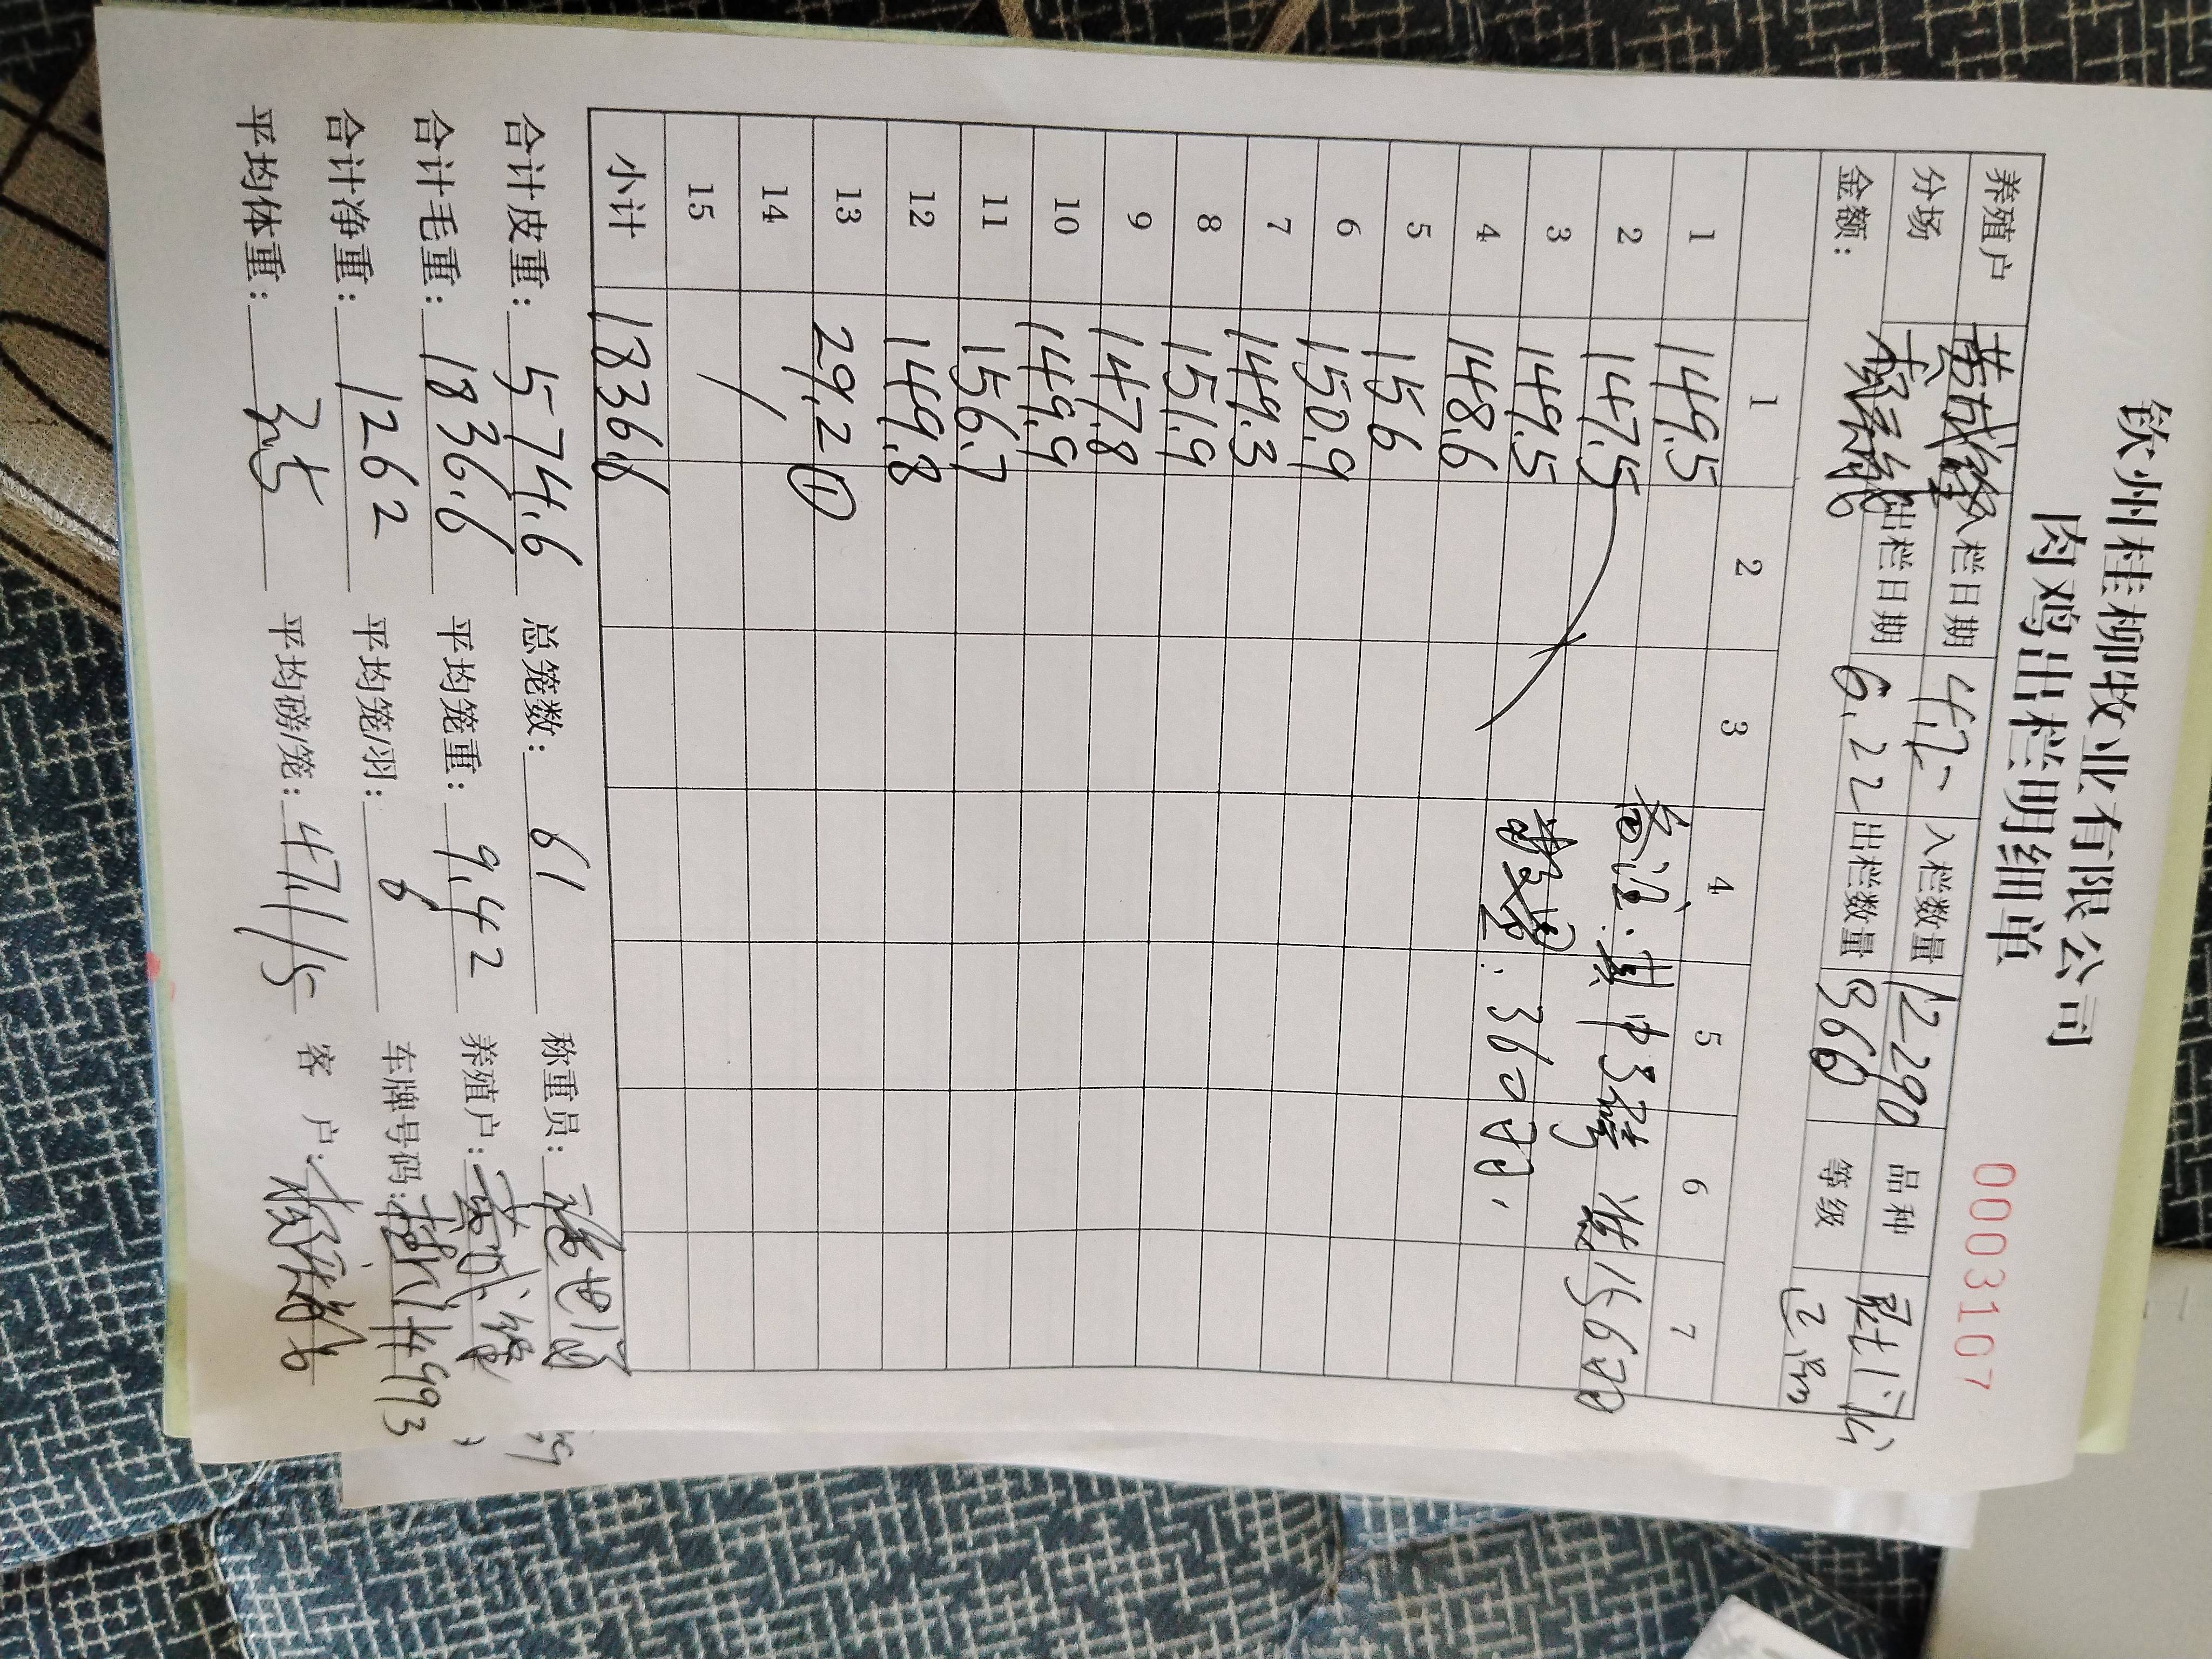 钦州桂柳牧业有限公司
肉鸡出栏明细单
0003107
养殖户 入栏日期 4.2 入栏数量 12290 品种
分场 出栏日期 6.22 出栏数量 360 等级
金额：
1 2 3 4 5 6 7
1 149.5
2 147.5
3 149.5
4 148.6
5 156
6 150.9
7 149.3
8 151.9
9 147.8
10 149.9
11 156.7
12 149.8
13 29.2 ①
14
15
小计 1836.6
备注：其中
：360羽
合计皮重：574.6 总笼数：61 称重员：
合计毛重：1836.6 平均笼重：9.42 养殖户：
合计净重：1262 平均笼/羽：6 车牌号码：
平均体重：3.5 平均磅/笼：47.1/5 客户：